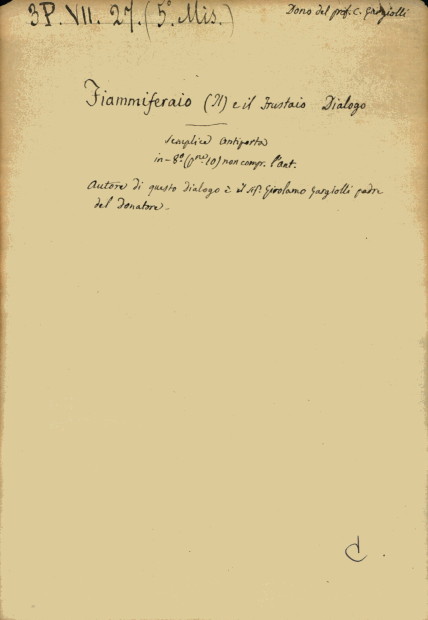 3P. VII. 27. (5º. Mis.)
Dono del prof. C. Gargiolli
Fiammiferaio (Il) e il Frustaio Dialogo
Semplice antiporta
in-8º (pne 10) non compr. l'ant.
Autore di questo dialogo è il Sigr. Girolamo Gargiolli padre
del Donatore.
C